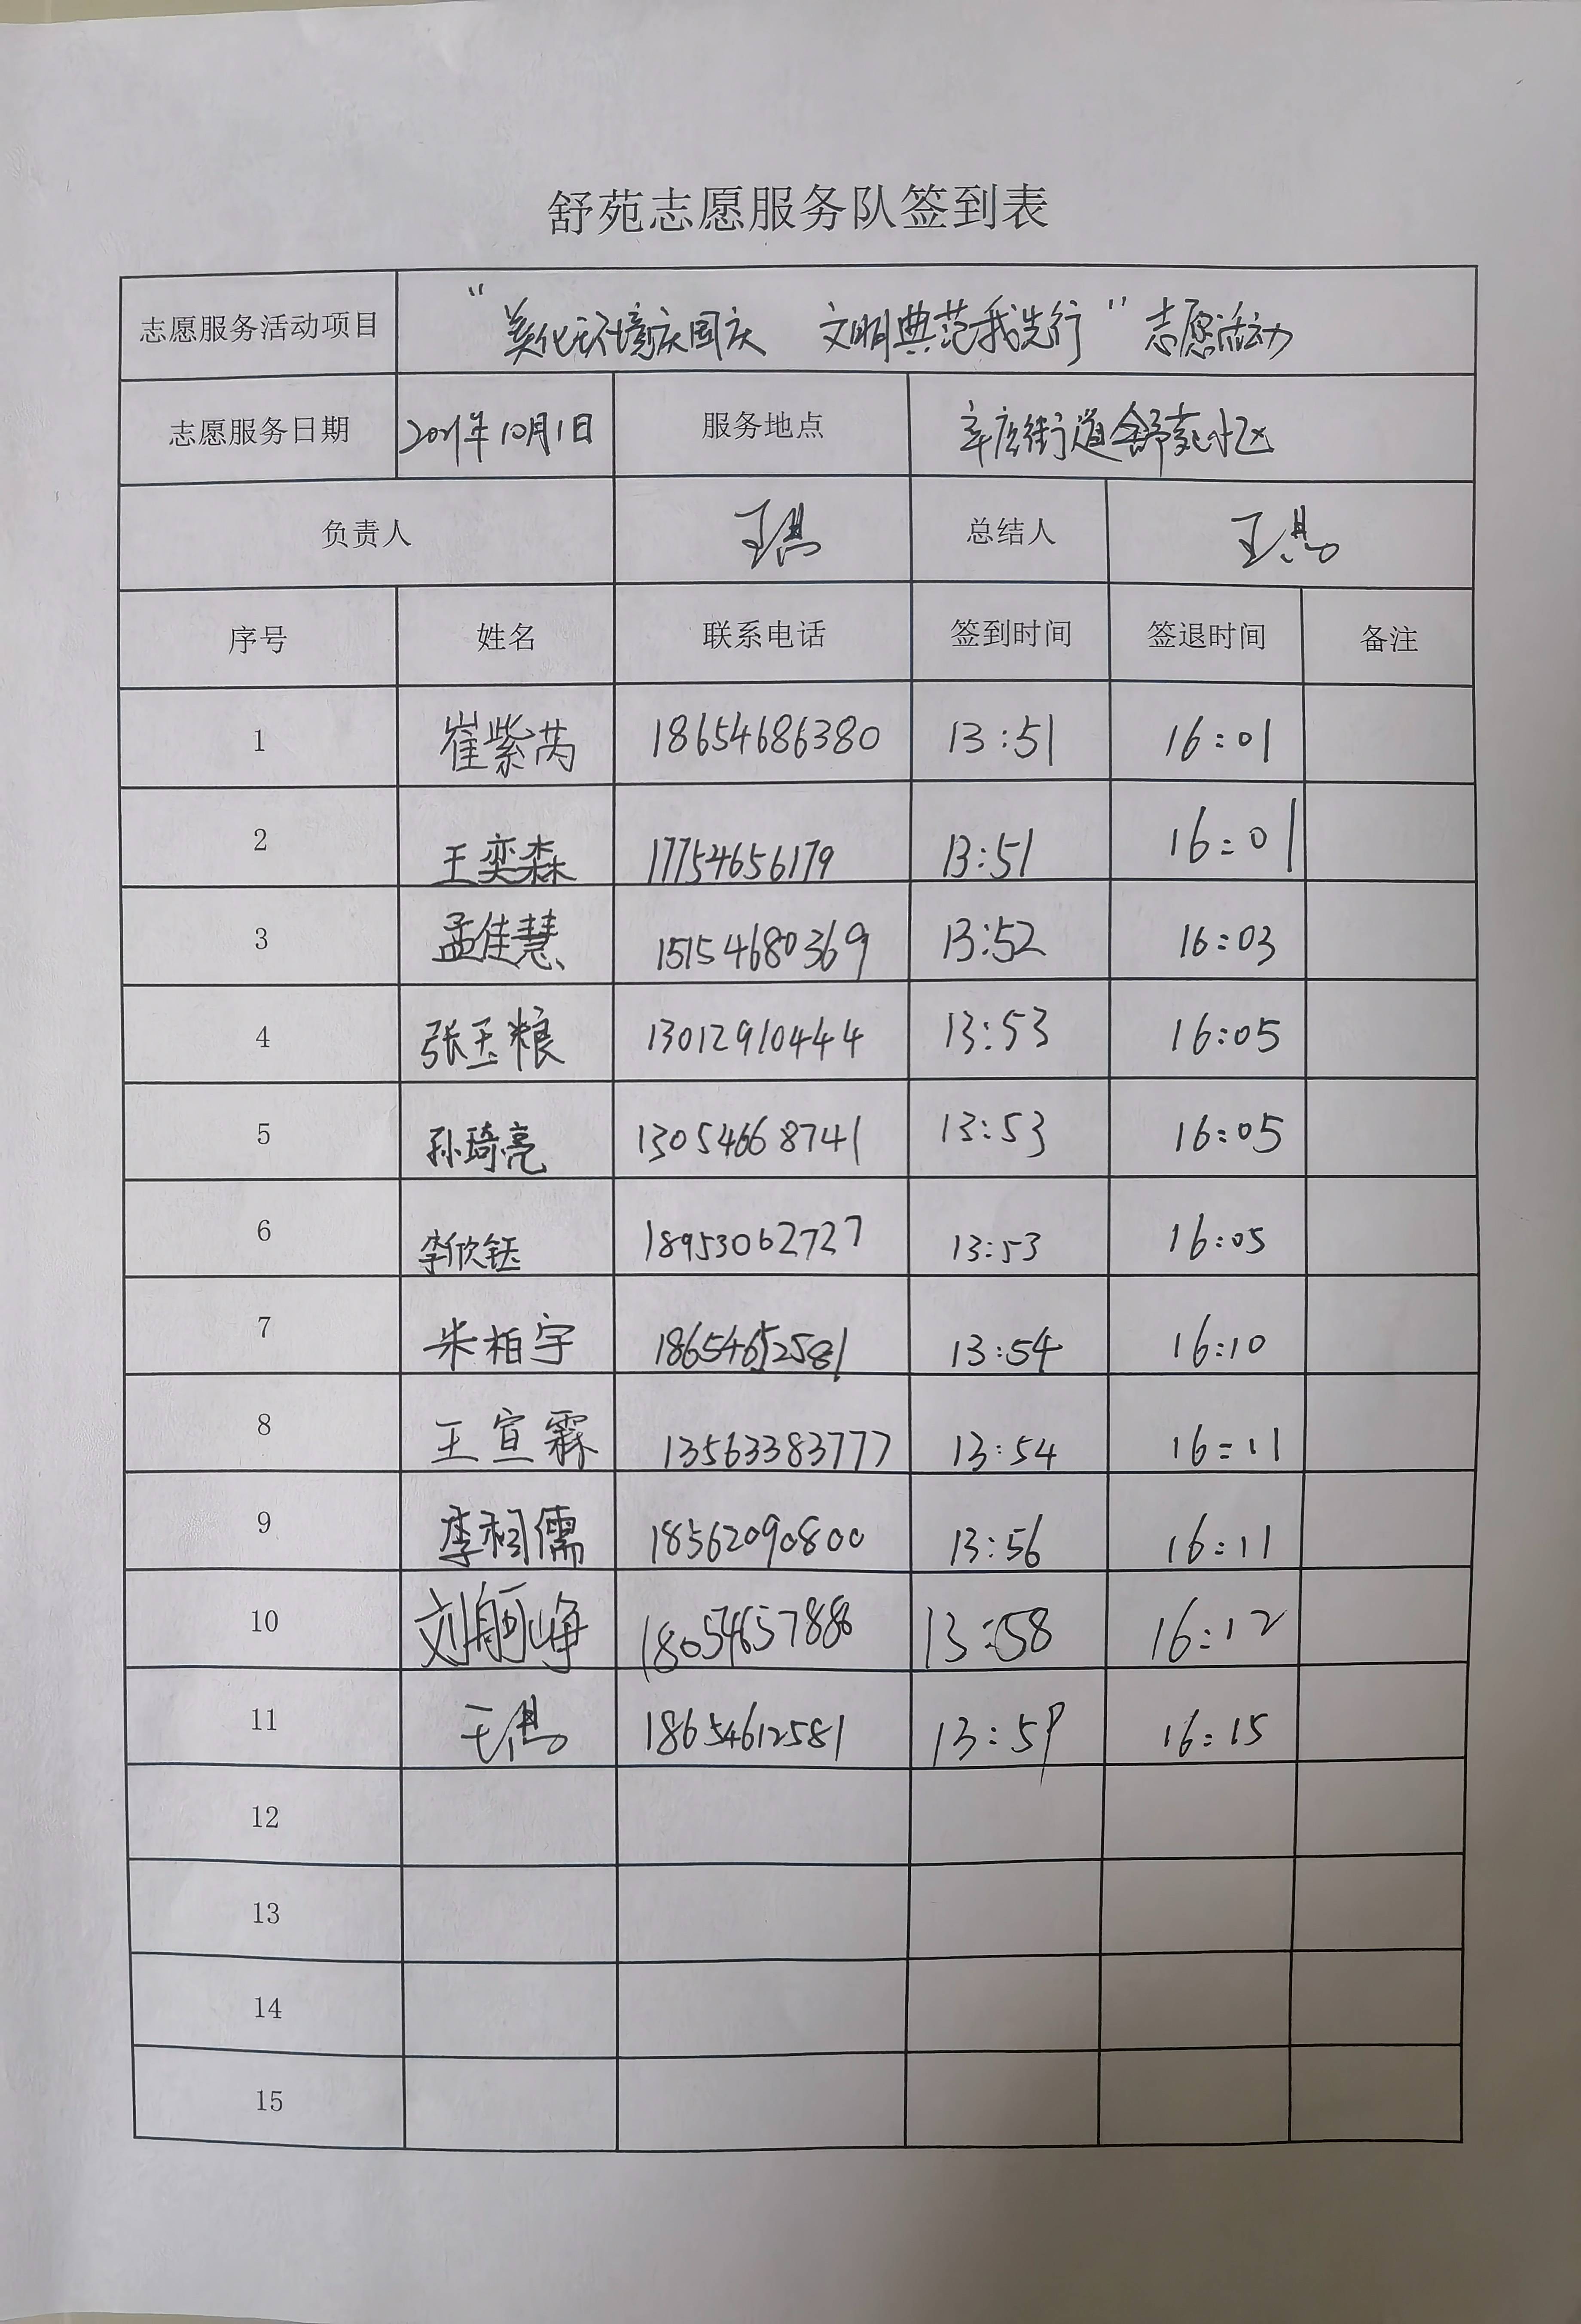 舒苑志愿服务队签到表
志愿服务活动项目 “美化环境庆国庆 文明典范我先行”志愿活动
志愿服务日期 2021年10月1日 服务地点 辛店街道舒苑小区
负责人 王 总结人 王
序号 姓名 联系电话 签到时间 签退时间 备注
1 崔紫芮 18654686380 13:51 16:01
2 王奕森 17754656179 13:51 16:01
3 孟佳慧 15154680369 13:52 16:03
4 张玉粮 13012910444 13:53 16:05
5 孙琦亮 13054668741 13:53 16:05
6 李欣钰 18953062727 13:53 16:05
7 朱柏宇 18654612581 13:54 16:10
8 王宣霖 13563383777 13:54 16:11
9 李栩儒 18562090800 13:56 16:11
10 刘舸峥 18054657886 13:58 16:12
11 王 18654612581 13:59 16:15
12
13
14
15